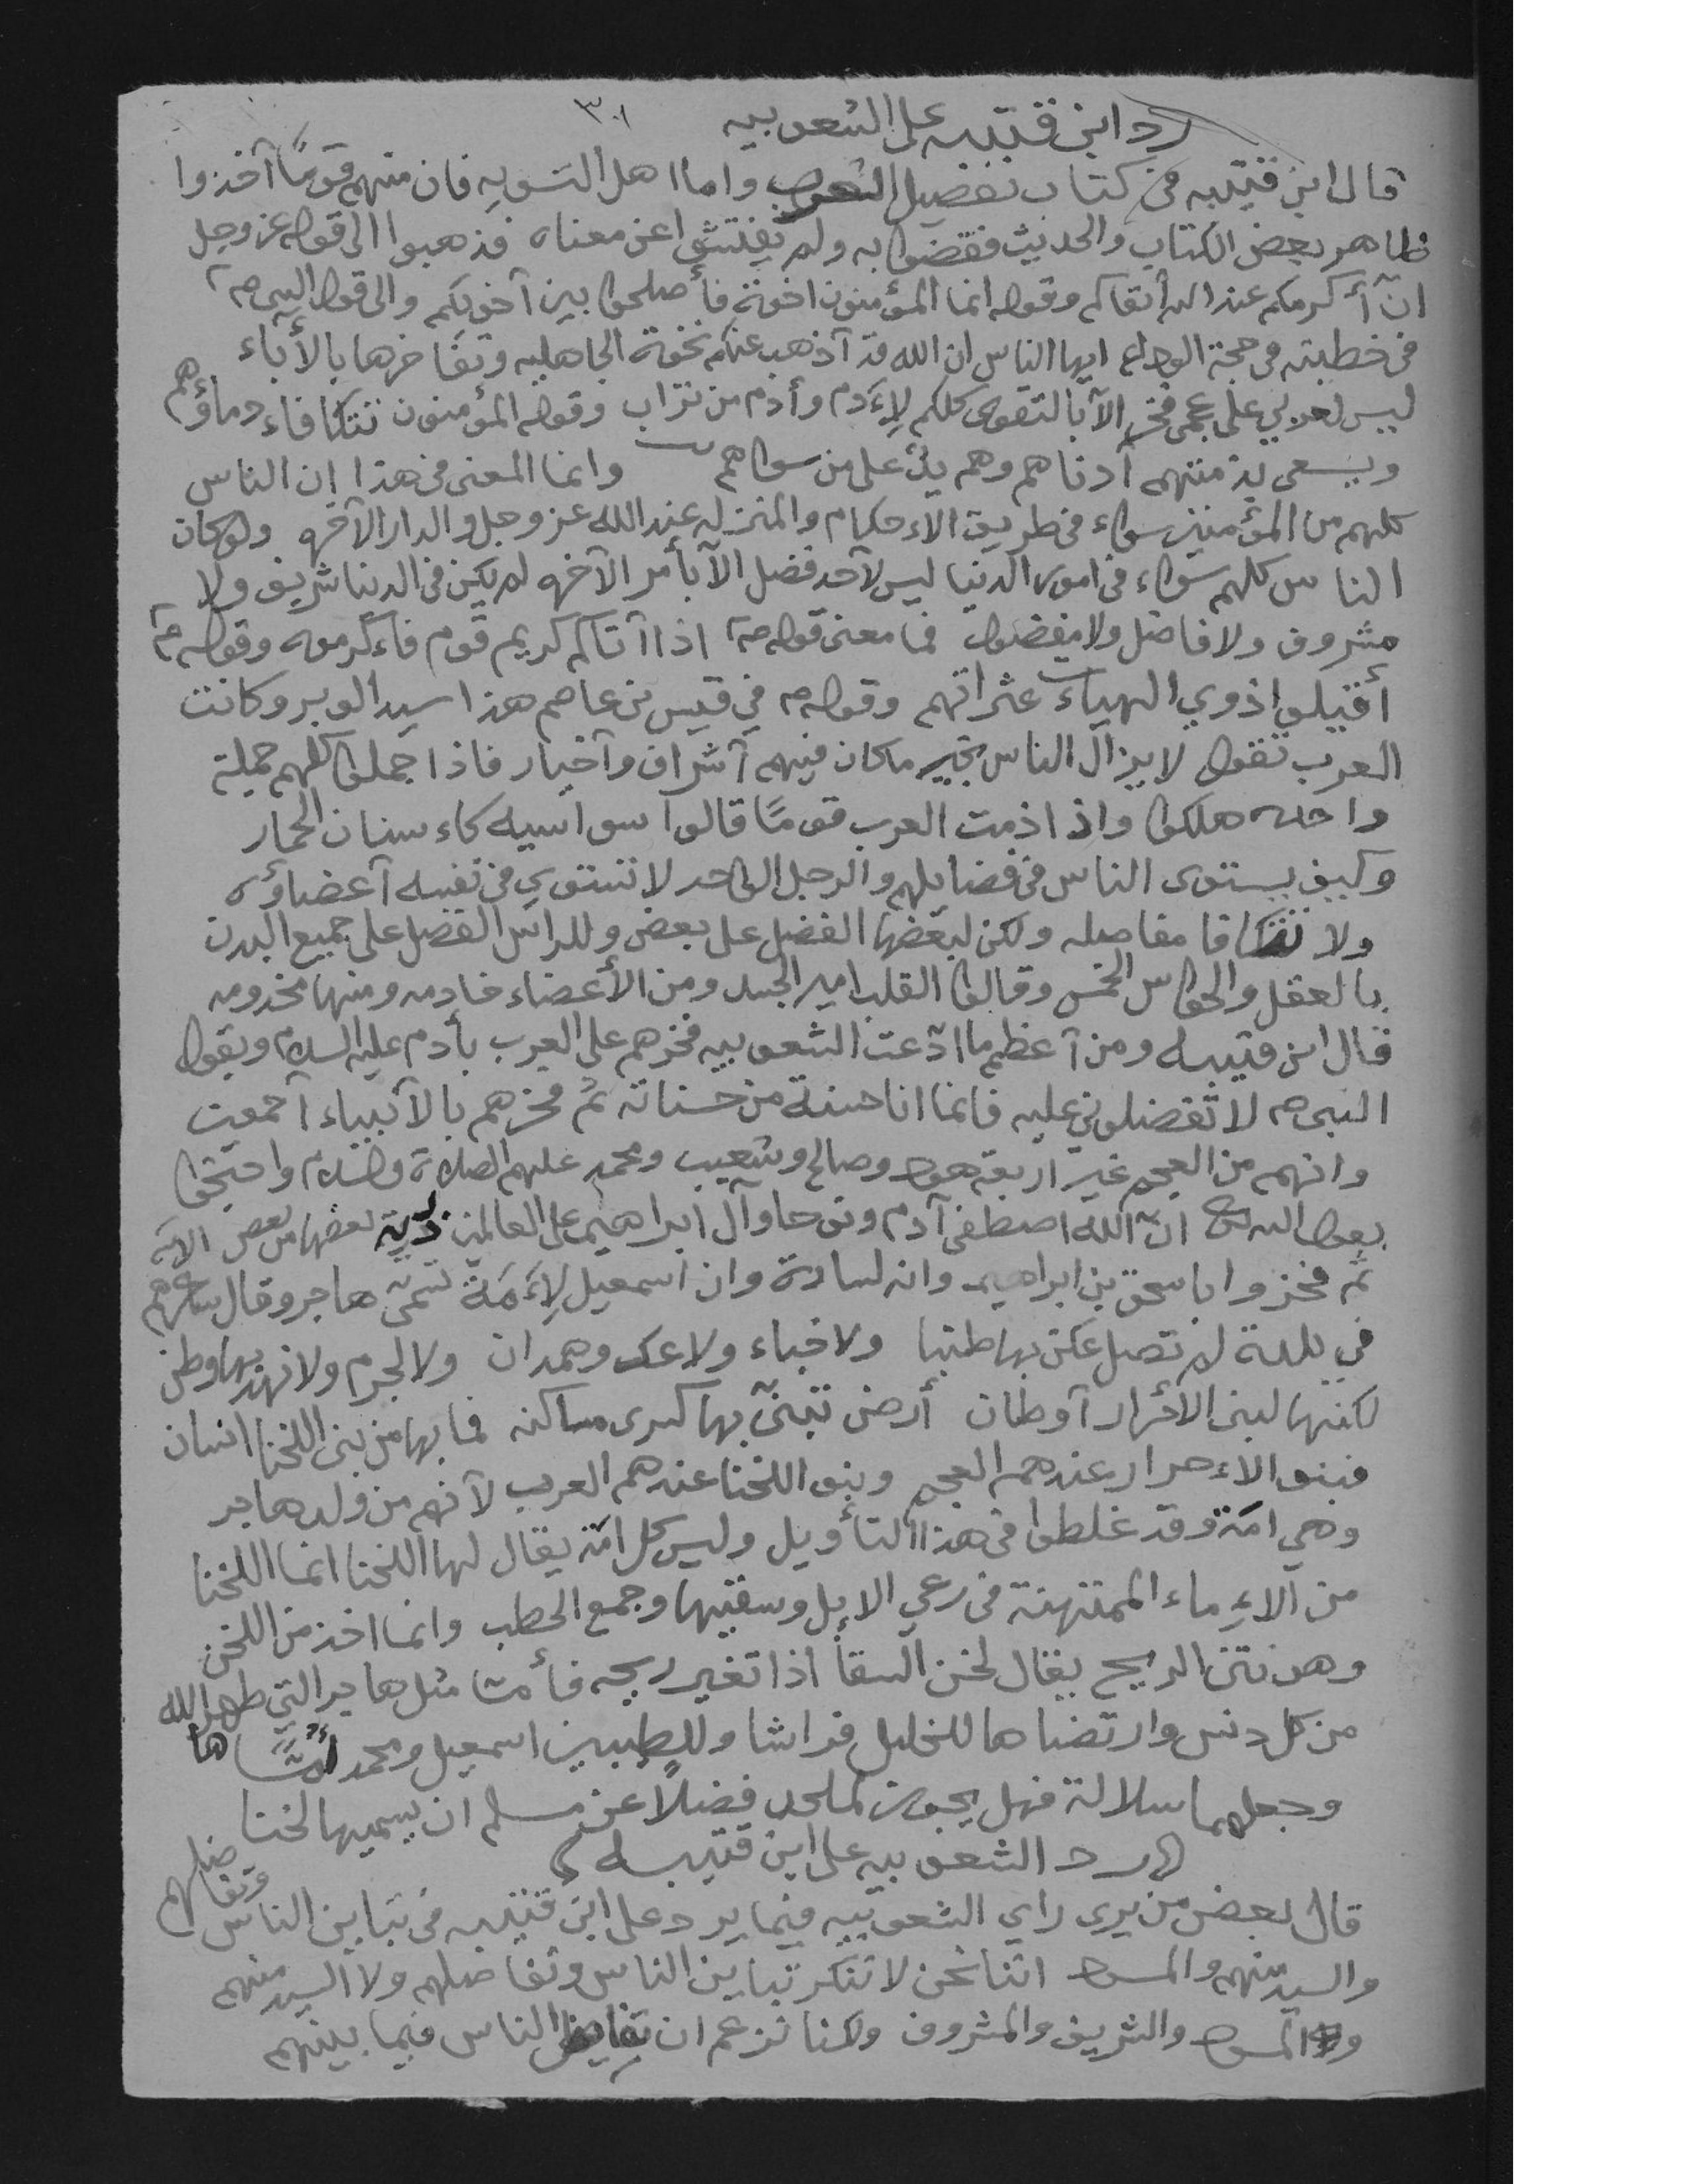 رد ابن قتيبه على الشعوبيه ٣٠١
قال ابن قتيبه فى كتاب تفضيل العرب واما اهل التسويه فان منهم قومًا آخذوا
ظاهر بعض الكتاب والحديث فقضوا به ولم يفتشوا عن معناه فذهبوا الى قوله عز وجل
انّ أكرمكم عند الله أتقاكم وقوله انما المؤمنون اخوة فأصلحوا بين آخويكم والى قول النبى ص
فى خطبته فى حجة الوداع ايها الناس ان الله قد آذهب عنكم نخوة الجاهليه وتفاخرها بالأباء
ليس لعربي على عجمى فخر الآ بالتقوى كلكم لاءَدم وأدم من تراب وقوله المؤمنون تتكافاء دماؤهم
ويسعى بذمتهم آدناهم وهم يدٌ على من سواهم وانما المعنى فى هذا ان الناس
كلهم من المؤمنين سواء فى طريق الاءحكام والمنزله عند الله عز وجل والدار الآخره ولو كان
الناس كلهم سواء فى امور الدنيا ليس لآحد فضل الآ بأمر الآخره لم يكن فى الدنيا شريف ولا
مشروف ولا فاضل ولا مفضول فما معنى قوله ص اذا آتاكم كريم قوم فاءكرموه وقوله ص
أقيلوا ذوي الهياءت عثراتهم وقوله ص في قيس بن عاصم هذا سيد الوبر وكانت
العرب تقول لا يزال الناس بخير ما كان فيهم آشراف وآخيار فاذا جملوا كلهم جملة
واحده هلكوا واذا ذمت العرب قومًا قالوا سواسيه كاءسنان الحمار
وكيف يستوى الناس فى فضايلهم والرجل الواحد لا تستوي فى نفسه آعضاؤه
ولا تتكافا مفاصله ولكن لبعضها الفضل على بعض وللراس الفضل على جميع البدن
بالعقل والحواس الخمس وقالوا القلب امير الجسد ومن الأعضاء خادمه ومنها مخدومه
قال ابن قتيبه ومن آعظم ما ادّعت الشعوبيه فخرهم على العرب بأدم عليه السلام وبقول
النبى ص لا تفضلوني عليه فانما انا حسنة من حسناته ثم فخرهم بالآنبياء آجمعين
وانهم من العجم غير اربعة هود وصالح وشعيب ومحمد عليهم الصلاة والسلام واحتجوا
بقول الله تع انّ الله اصطفى آدم ونوحا وآل ابراهيم على العالمين ذرية بعضها من بعض الآيه
ثم فخروا باسحق بن ابراهيم وانه لسارة وان اسمعيل لاءَمَة تسمى هاجر وقال شاعرهم
في بلدة لم تصل عكن بها طنبا ولا خباء ولا عك وهمدان ولا لجرم ولا نهد بها وطن
لكنها لبنى الأحرار آوطان أرض تبنىّ بها كسرى مساكنه فما بها من بنى اللخنا انسان
فبنو الاءحرار عندهم العجم وبنو اللخنا عندهم العرب لآنهم من ولد هاجر
وهي امة وقد غلطوا فى هذا التأويل وليس كل امة يقال لها اللخنا انما اللخنا
من الاءِماء الممتهنة فى رعي الابل وسقيها وجمع الحطب وانما اخذ من اللخن
وهو نتن الريح يقال لخن السقأ اذا تغير ريحه فأما مثل هاجر التي طهرها الله
من كل دنس وارتضاها للخليل فراشا وللطيبين اسمعيل ومحمد أمًّا
وجعلهما سلالة فهل يجوز لملحد فضلاً عن مسلم ان يسميها لخنا
رد الشعوبيه على ابن قتيبه
قال بعض من يرى راي الشعوبيه فيما يرد على ابن قتيبه فى تباين الناس وتفاضلهم
والسيد منهم والمسود اننا نحن لا ننكر تباين الناس وتفاضلهم ولا السيد منهم
والمسود والشريف والمشروف ولكنا نزعم ان تفاضل الناس فيما بينهم